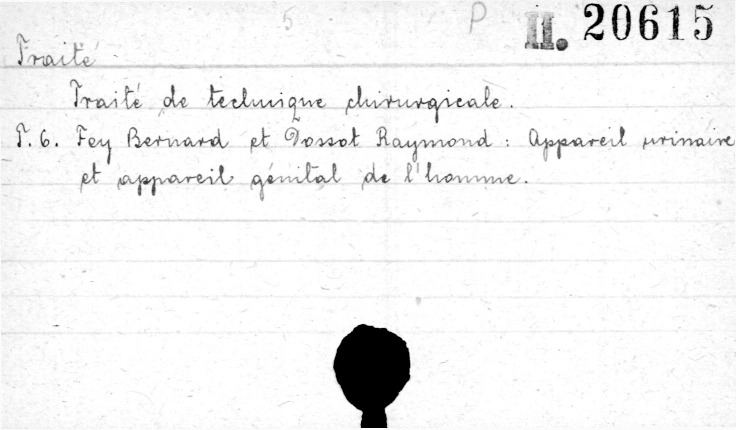 5 P II. 20615
Traité
Traité de technique chirurgicale.
T. 6. Fey Bernard et Dossot Raymond : Appareil urinaire
et appareil génital de l'homme.